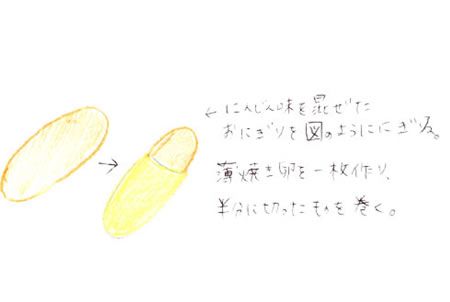 ←にんじん味を混ぜた
おにぎりを図のようににぎる。
薄焼き卵を一枚作り、
半分に切ったものを巻く。